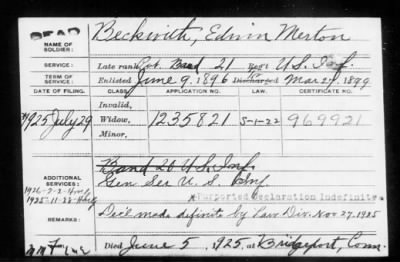 DEAD
NAME OF SOLDIER: Beckwith, Edwin Merton
SERVICE: Late rank Cpt. Band 21 Reg't U.S. Inf.
TERM OF SERVICE: Enlisted June 9, 1896 Discharged Mar 29, 1899
DATE OF FILING. CLASS. APPLICATION NO. LAW. CERTIFICATE NO.
Invalid,
1925 July 29 Widow, 1235821 5-1-22 969921
Minor,
ADDITIONAL SERVICES: Band 20 U.S. Inf.
Gen Ser U. S. Inf.
1926-2-2
1925-11-28
Purported Declaration Indefinite.
REMARKS: Decl made definite by Law Div. Nov 27, 1925
Died June 5, 1925, at Bridgeport, Conn.